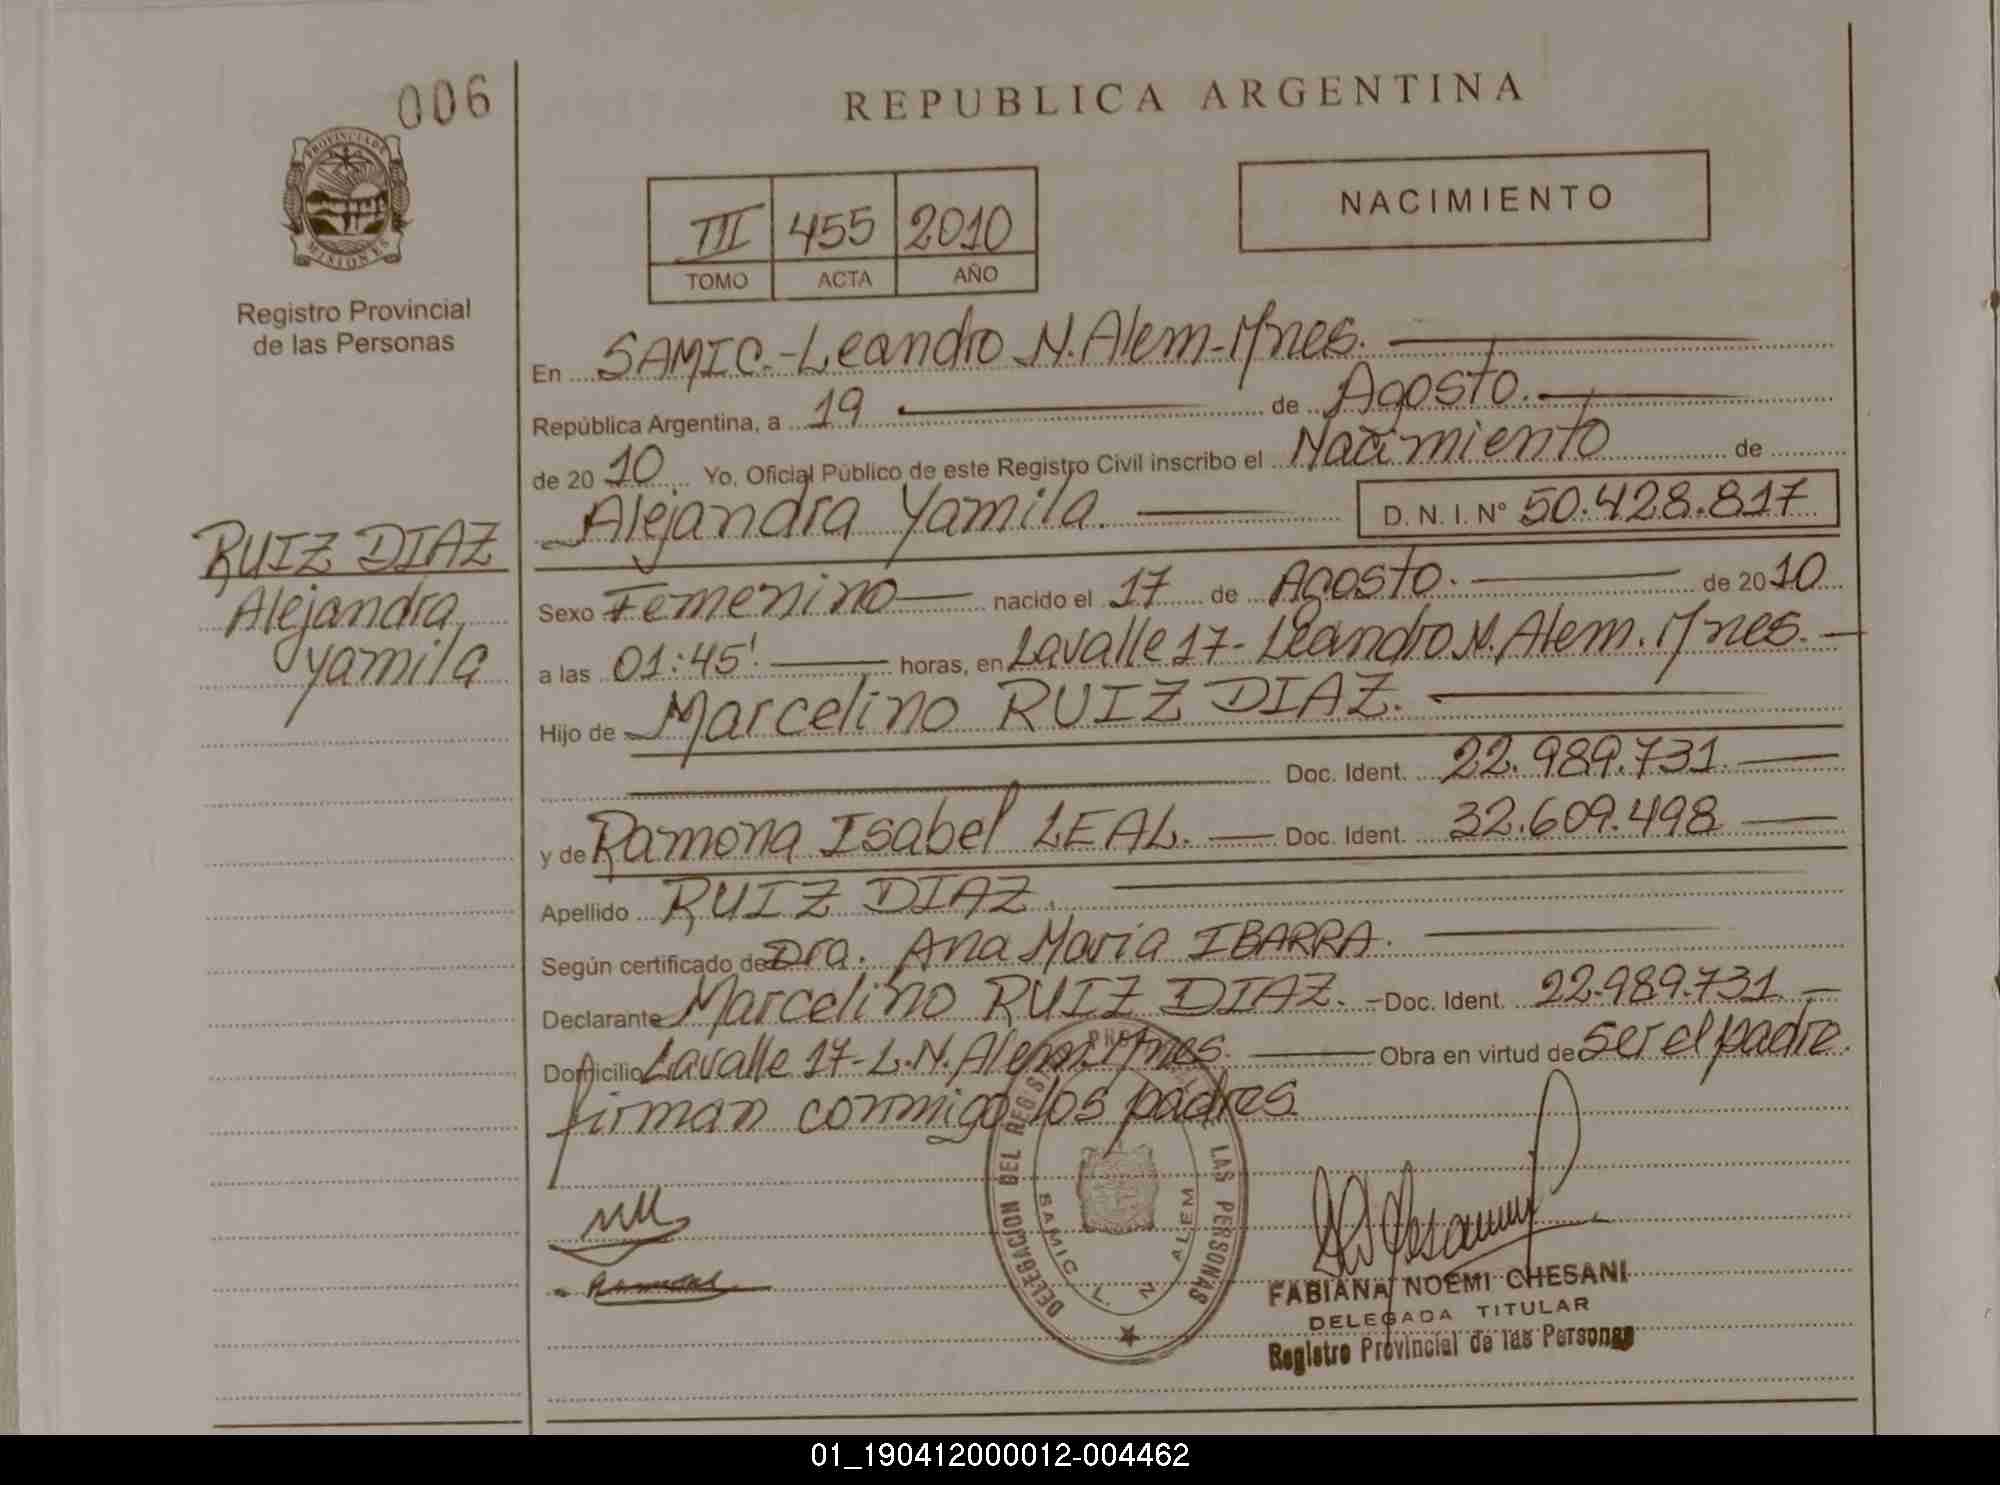 006
REPUBLICA ARGENTINA
PROVINCIA DE MISIONES
NACIMIENTO
III 455 2010
TOMO ACTA AÑO
Registro Provincial
de las Personas
En SAMIC.-Leandro N. Alem-Mnes.
República Argentina, a 19 de Agosto.
de 2010. Yo, Oficial Público de este Registro Civil inscribo el Nacimiento de
Alejandra Yamila. D. N. I. Nº 50.428.817
RUIZ DIAZ
Alejandra
Yamila
Sexo Femenino nacido el 17 de Agosto. de 2010
a las 01:45'. horas, en Lavalle 17- Leandro N. Alem. Mnes.
Hijo de Marcelino RUIZ DIAZ.
Doc. Ident. 22.989.731.
y de Ramona Isabel LEAL. Doc. Ident. 32.609.498
Apellido RUIZ DIAZ.
Según certificado de Dra. Ana Maria IBARRA.
Declarante Marcelino RUIZ DIAZ. Doc. Ident. 22.989.731
Domicilio Lavalle 17-L.N. Alem. Mnes. Obra en virtud de ser el padre.
firman conmigo los padres
DELEGACION DEL LAS PERSONAS
SAMIC L. N. ALEM
FABIANA NOEMI CHESANI
DELEGADA TITULAR
Registro Provincial de las Personas
01_190412000012-004462